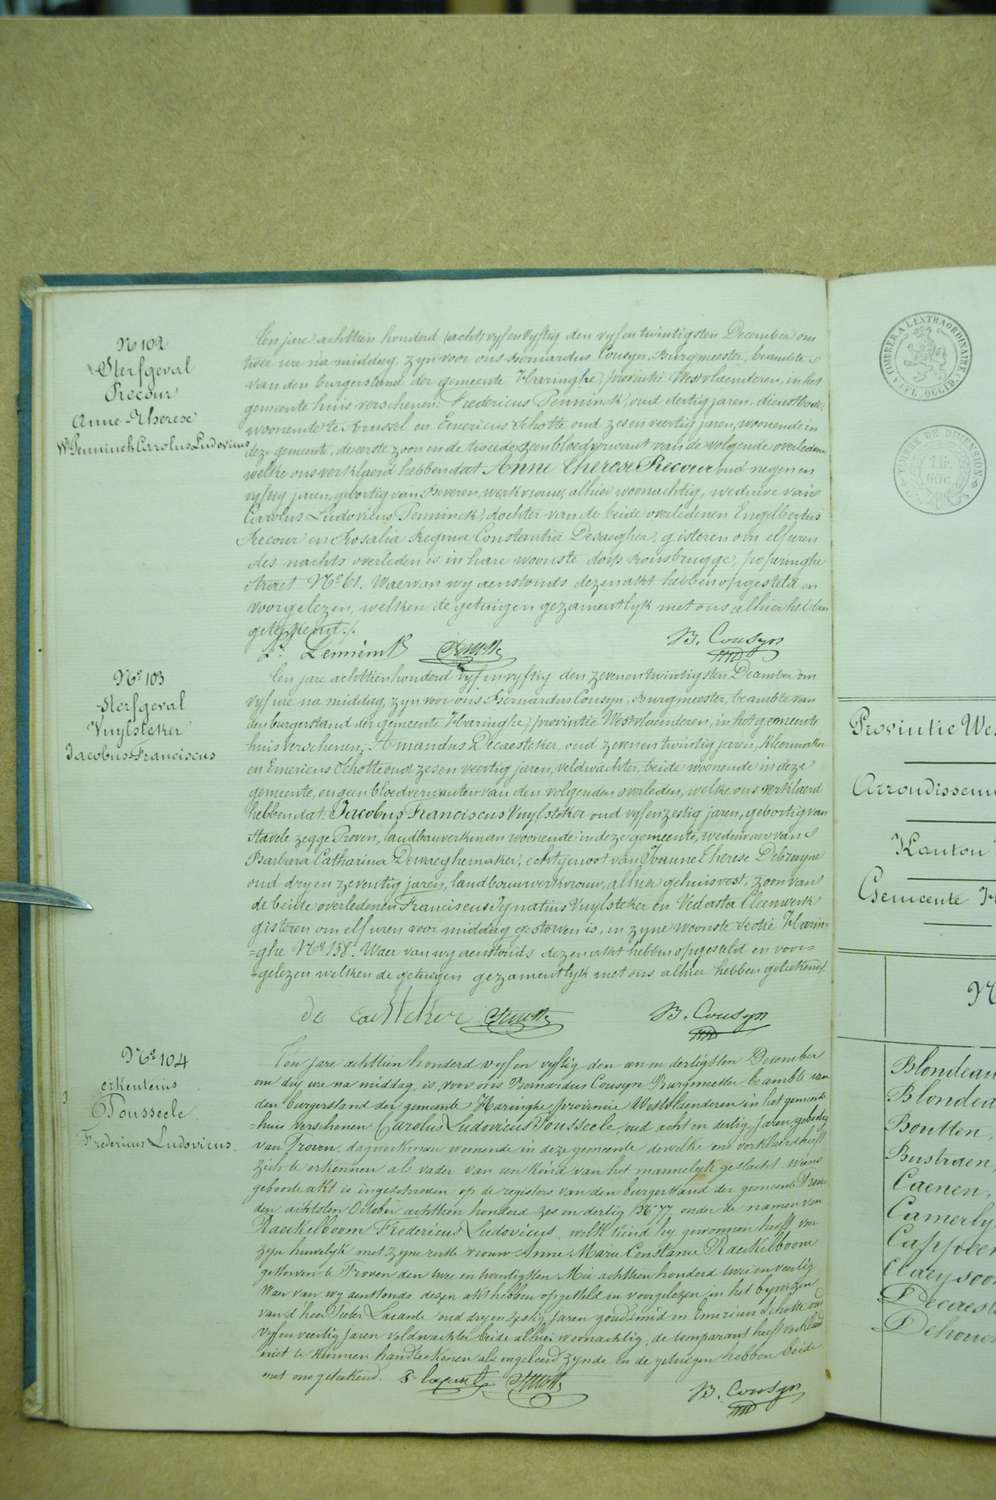 N° 102
Sterfgeval
Recour
Anne-Therese
We Penninck Carolus Ludovicus
Een jare achttien honderd vyfenvyftig den vyfentwintigsten December om
twee ure na middag, zyn voor ons Bernardus Cousyn, Burgmeester, beambte
van den burgerstand der gemeente Haringhe, provintie Westvlaenderen, in het
gemeente huis verschenen: Fredericus Penninck, oud dertig jaren, dienstbode,
woonende te Brussel en Emericus Schotte oud zes en veertig jaren, woonende in
deze gemeente, de eerste zoon en de tweede geen bloedverwant van de volgende overledene
welke ons verklaerd hebben dat Anne Therese Recour oud negen en
vyftig jaren, gebortig van Beveren, werkvrouw, alhier woonachtig, weduwe van
Carolus Ludovicus Penninck, dochter van de beide overledenen Engelbertus
Recour en Rosalia Regina Constantia Desaegher, gisteren om elf uren
des nachts overleden is in hare woonste dorp Rousbrugge, poperinghe
straet N° 61. Waervan wy aenstonds dezen akt hebben opgesteld en
voorgelezen, welken de getuigen gezamentlyk met ons alhier hebben
geteekend ./.
F. Penninck Schotte B. Cousyn
N° 103
Sterfgeval
Vuylsteker
Jacobus Franciscus
Een jare achttien honderd vyfenvyftig den zevenentwintigsten December om
vyf ure na middag, zyn voor ons Bernardus Cousyn, Burgmeester, beambte van
den burgerstand der gemeente Haringhe, provintie Westvlaenderen, in het gemeente
huis verschenen; Amandus Decaesteker, oud zevenentwintig jaren, kleermaker
en Emericus Schotte oud zes en veertig jaren, veldwachter, beide woonende in deze
gemeente, en geen bloedverwanten van den volgenden overleden, welke ons verklaerd
hebben dat Jacobus Franciscus Vuylsteker oud vyfenzestig jaren, gebortig van
Stavele zegge Proven, landbouwerkman woonende in deze gemeente, weduwaer van
Barbara Catharina Dewaeghemaker, echtgenoot van Joanne Therese Debruyne
oud dry en zeventig jaren, landbouwwerkvrouw, alhier gehuisvest, zoon van
de beide overledenen Franciscus Ignatius Vuylsteker en Vedasta Cleenwerk
gisteren om elf uren voor middag gestorven is, in zyne woonste sectie Harin-
=ghe N° 138. Waer van wy aenstonds dezen akt hebben opgesteld en voor=
=gelezen welken de getuigen gezamentlyk met ons alhier hebben geteekend ./.
de caesteker Schotte B. Cousyn
N° 104
erkentenis
Pousseele
Fredericus Ludovicus
Een jare achttien honderd vyf en vyftig den een en dertigsten December
om dry ure na middag, is voor ons Bernardus Cousyn Burgmeester beambte van
den burgerstand der gemeente Haringhe provincie Westvlaenderen in het gemeente
=huis verschenen Carolus Ludovicus Pousseele, oud acht en dertig jaren, gebortig
van Proven, dagwerkman woonende in deze gemeente dewelke ons verklaerd heeft
zich te erkennen als vader van een kind van het mannelyk geslacht wiens
geboorte akt is ingeschreven op de registers van den burgerstand der gemeente Proven
den achtsten October achttien honderd zes en dertig N° 77 onder de namen van
Raeckelboom Fredericus Ludovicus, welk kind hy gewonnen heeft voor
zyn huwelyk met zyne eerste vrouw Anne Marie Constance Raeckelboom
gestorven te Proven den twee en twintigsten Mei achttien honderd twee en veertig
Waer van wy aenstonds dezen akt hebben opgesteld en voorgelezen in het bywezen
van d'heer Pieter Lacante oud dry en zestig jaren goudsmid en Emericus Schotte oud
vyf en veertig jaren veldwachter beide alhier woonachtig, de comparant heeft verklaerd
niet te kunnen handteekenen als ongeleerd zynde en de getuigen hebben beide
met ons geteekend. P. Lacante Schotte
B. Cousyn
TIMBRE A L'EXTRAORDINAIRE.
FL. OCCID.
TIMBRE DE DIMENSION
Provintie Wes
Arrondisseme
Kanton
Gemeente H
N
Blondeau
Blondea
Boutten,
Bustraen,
Caenen,
Camerly
Cappoen
Claeysoo
Decaest
Dehouc